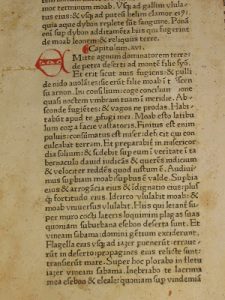 terminum moab. Vsq; ad gallim vlula
tus eius: & vsq; ad puteū helim clamor ei⁹.
quia aque dybon replete sūt sanguine. Ponā
enī sup dybon additamēta hiis qui fugerint
de moab leonem & reliquiis terre.
Capitulum .xvi.
Mitte agnum dominatorem terre:
de petra deserti ad montē filie syō.
Et erit sicut auis fugiens & pulli
de nido auolātes: sic erūt filie moab ī trāscē
su arnon. Ini consilium: coge conciliū: pone
quasi noctem vmbram tuam ī meridie. Ab
sconde fugientes: & vagos ne prodas. Habi
tabunt apud te profugi mei. Moab esto latibu
lum eoꝝ a facie vastatoris. Finitus est enim
puluis: consummatus est miser: defecit qui con
culcabat terram. Et preparabit̄ in misericor
dia solium eius: & sedebit sup illud ī veritate ī ta
bernaculo dauid iudicās & querēs iudicium
& velociter reddēs quod iustum ē. Audiui
mus supbiam moab supbus ē valde. Supbia
eius & arrogācia eius & idignatio eius: plus
q̄ fortitudo eius. Idcirco vlulabit moab: &
moab vniuersus vlulabit. Hiis qui letant̄ su
per muro cocti lateris loquimini plagas suas
quoniam suburbana esebon deserta sunt. Et
vineam sabama: domini gētium exciderunt.
Flagella eius vsq; ad iazer puenerūt: erraue
rūt in deserto: ppagines eius relicte sunt:
transierūt mare. Super hoc plorabo in fletu
iazer vineam sabama. Inebriabo te lacrima
mea esebon & eleale: quoniam sup vindemiā